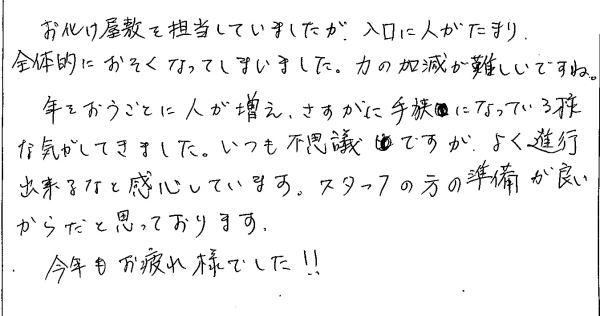 お化け屋敷を担当していましたが、入口に人がたまり、
全体的におそくなってしまいました。力の加減が難しいですね。
年をおうごとに人が増え、さすがに手狭になっている様
な気がしてきました。いつも不思議ですが、よく進行
出来るなと感心しています。スタッフの方の準備が良い
からだと思っております。
今年もお疲れ様でした!!